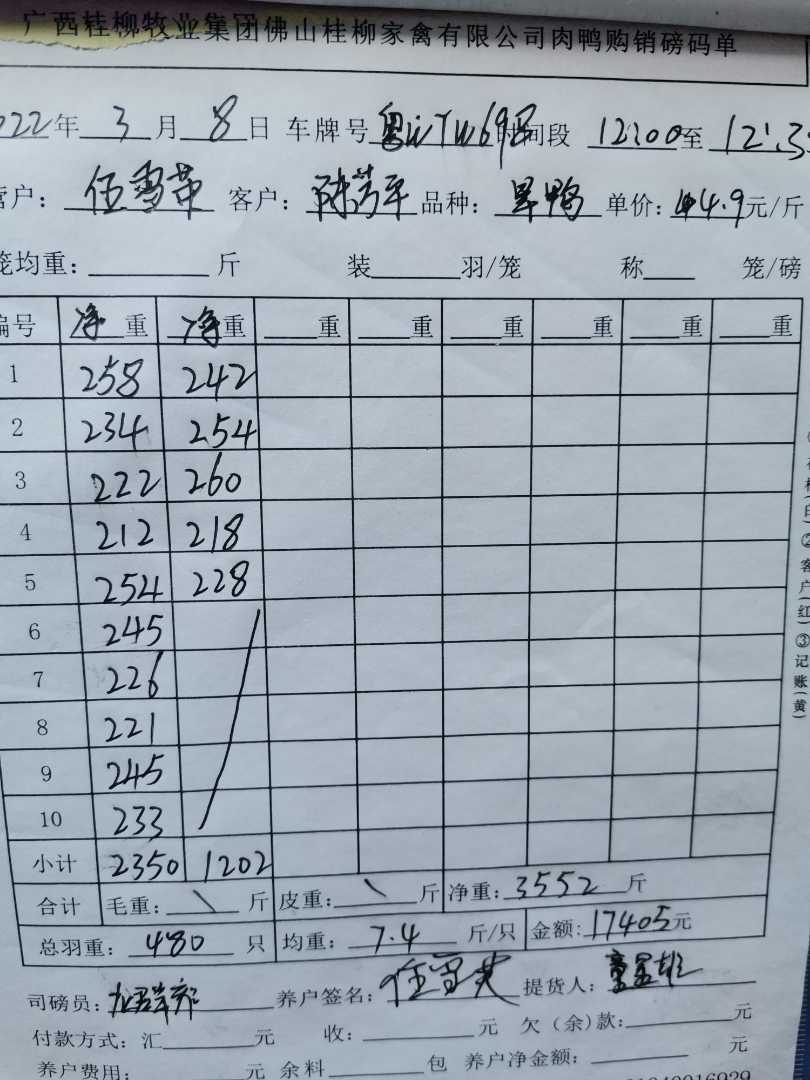 广西桂柳牧业集团佛山桂柳家禽有限公司肉鸭购销磅码单
022年 3 月 8 日 车牌号 粤 698 时间段 12:00 至 12:3
户: 伍雪 客户: 陈芳平 品种: 旱鸭 单价: 4.9 元/斤
笼均重: 斤 装 羽/笼 称 笼/磅
编号 净重 净重 重 重 重 重 重 重
1 258 242
2 234 254
3 222 260
4 212 218
5 254 228
6 245
7 226
8 221
9 245
10 233
小计 2350 1202
合计 毛重: \ 斤 皮重: \ 斤 净重: 3552 斤
总羽重: 480 只 均重: 7.4 斤/只 金额: 17405 元
司磅员: 养户签名: 伍雪 提货人:
付款方式: 汇 元 收: 元 欠(余)款: 元
养户费用: 元 余料 包 养户净金额: 元
②客户(红)③记账(黄)